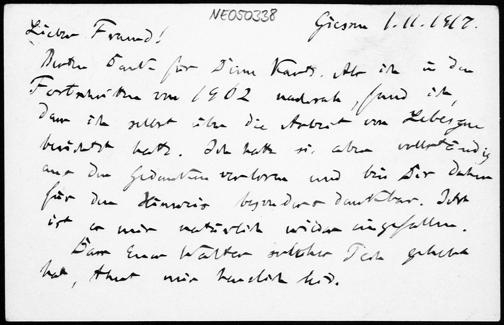 NE050338
Giessen 1.11.1917.
Lieber Freund!
Besten Dank für Deine Karte. Als ich in den
Fortschritten von 1902 nachsah, fand ich,
dass ich selbst über die Arbeit von Lebesgue
berichtet hatte. Ich hatte sie aber vollständig
aus den Gedanken verloren und bin Dir daher
für den Hinweis besonders dankbar. Jetzt
ist er mir natürlich wieder eingefallen.
Dass Euer Walter solches Pech gehabt
hat, thut mir herzlich leid.